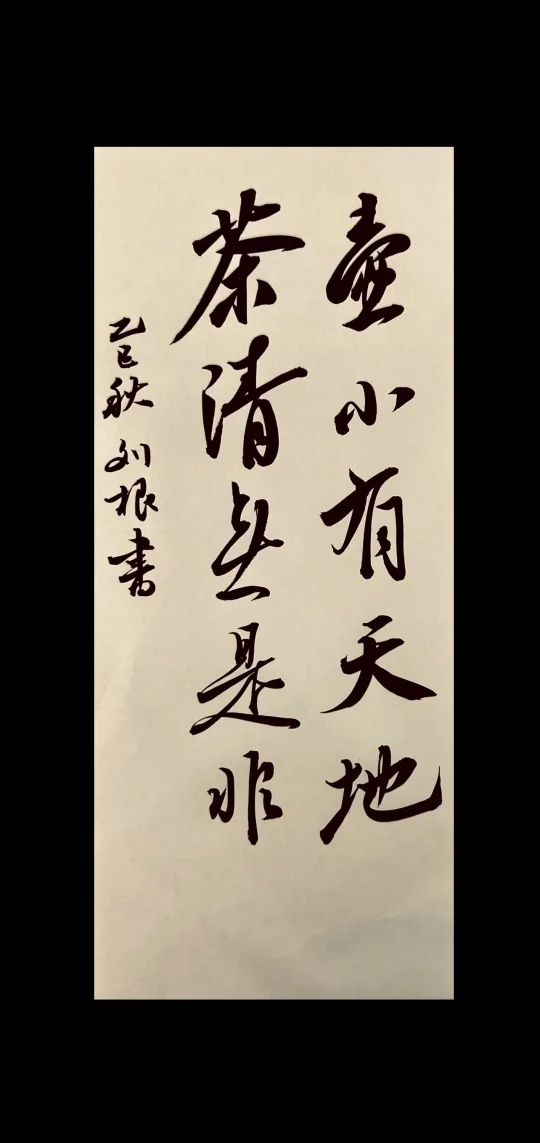 壺小有天地
茶清無是非
乙巳秋 刘根書